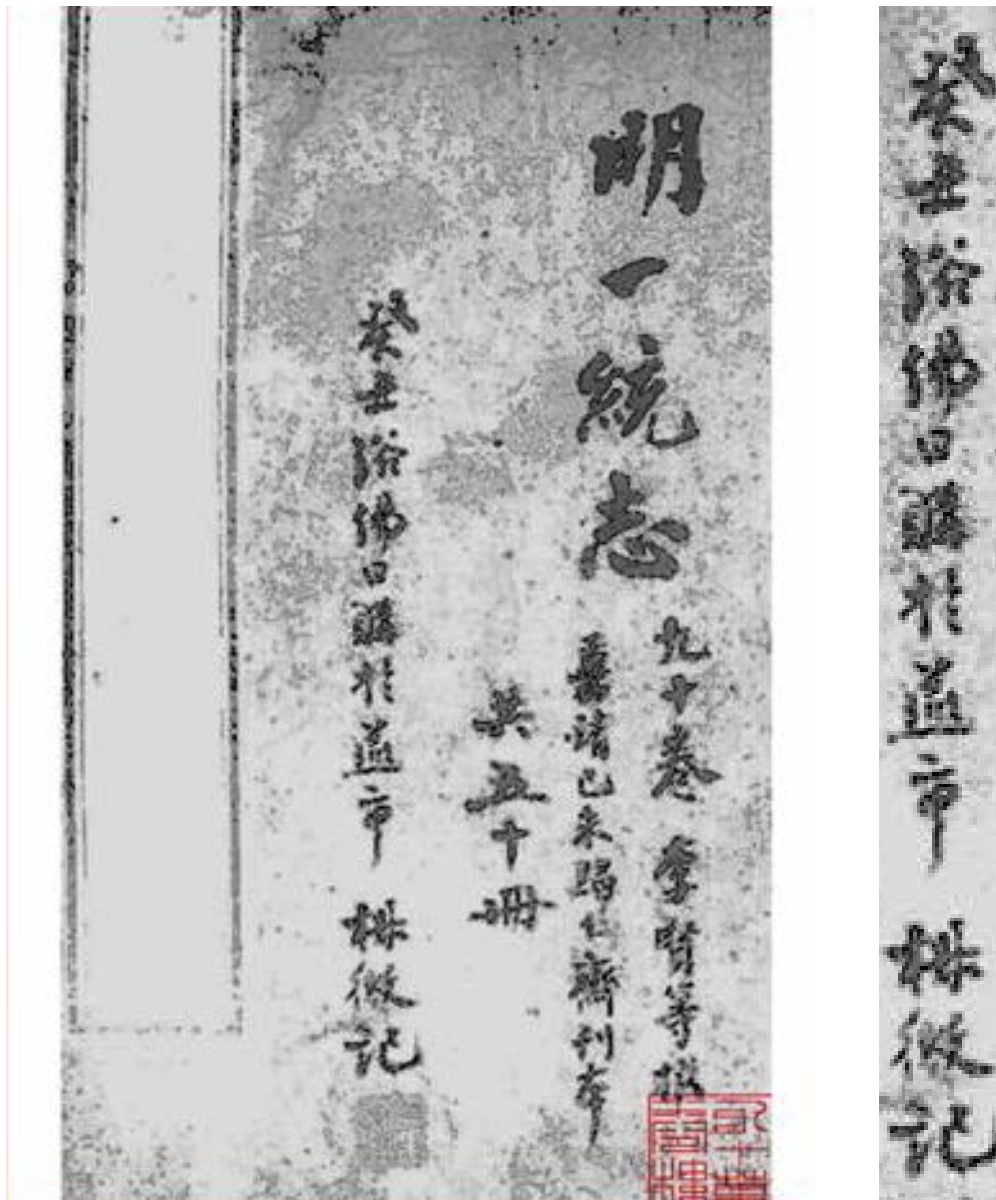 明一統志
九十卷 李賢等撰
嘉靖己未歸仁齋刊本
共五十冊
癸丑浴佛日購於燕市
株微記
癸丑浴佛日購於燕市
株微記